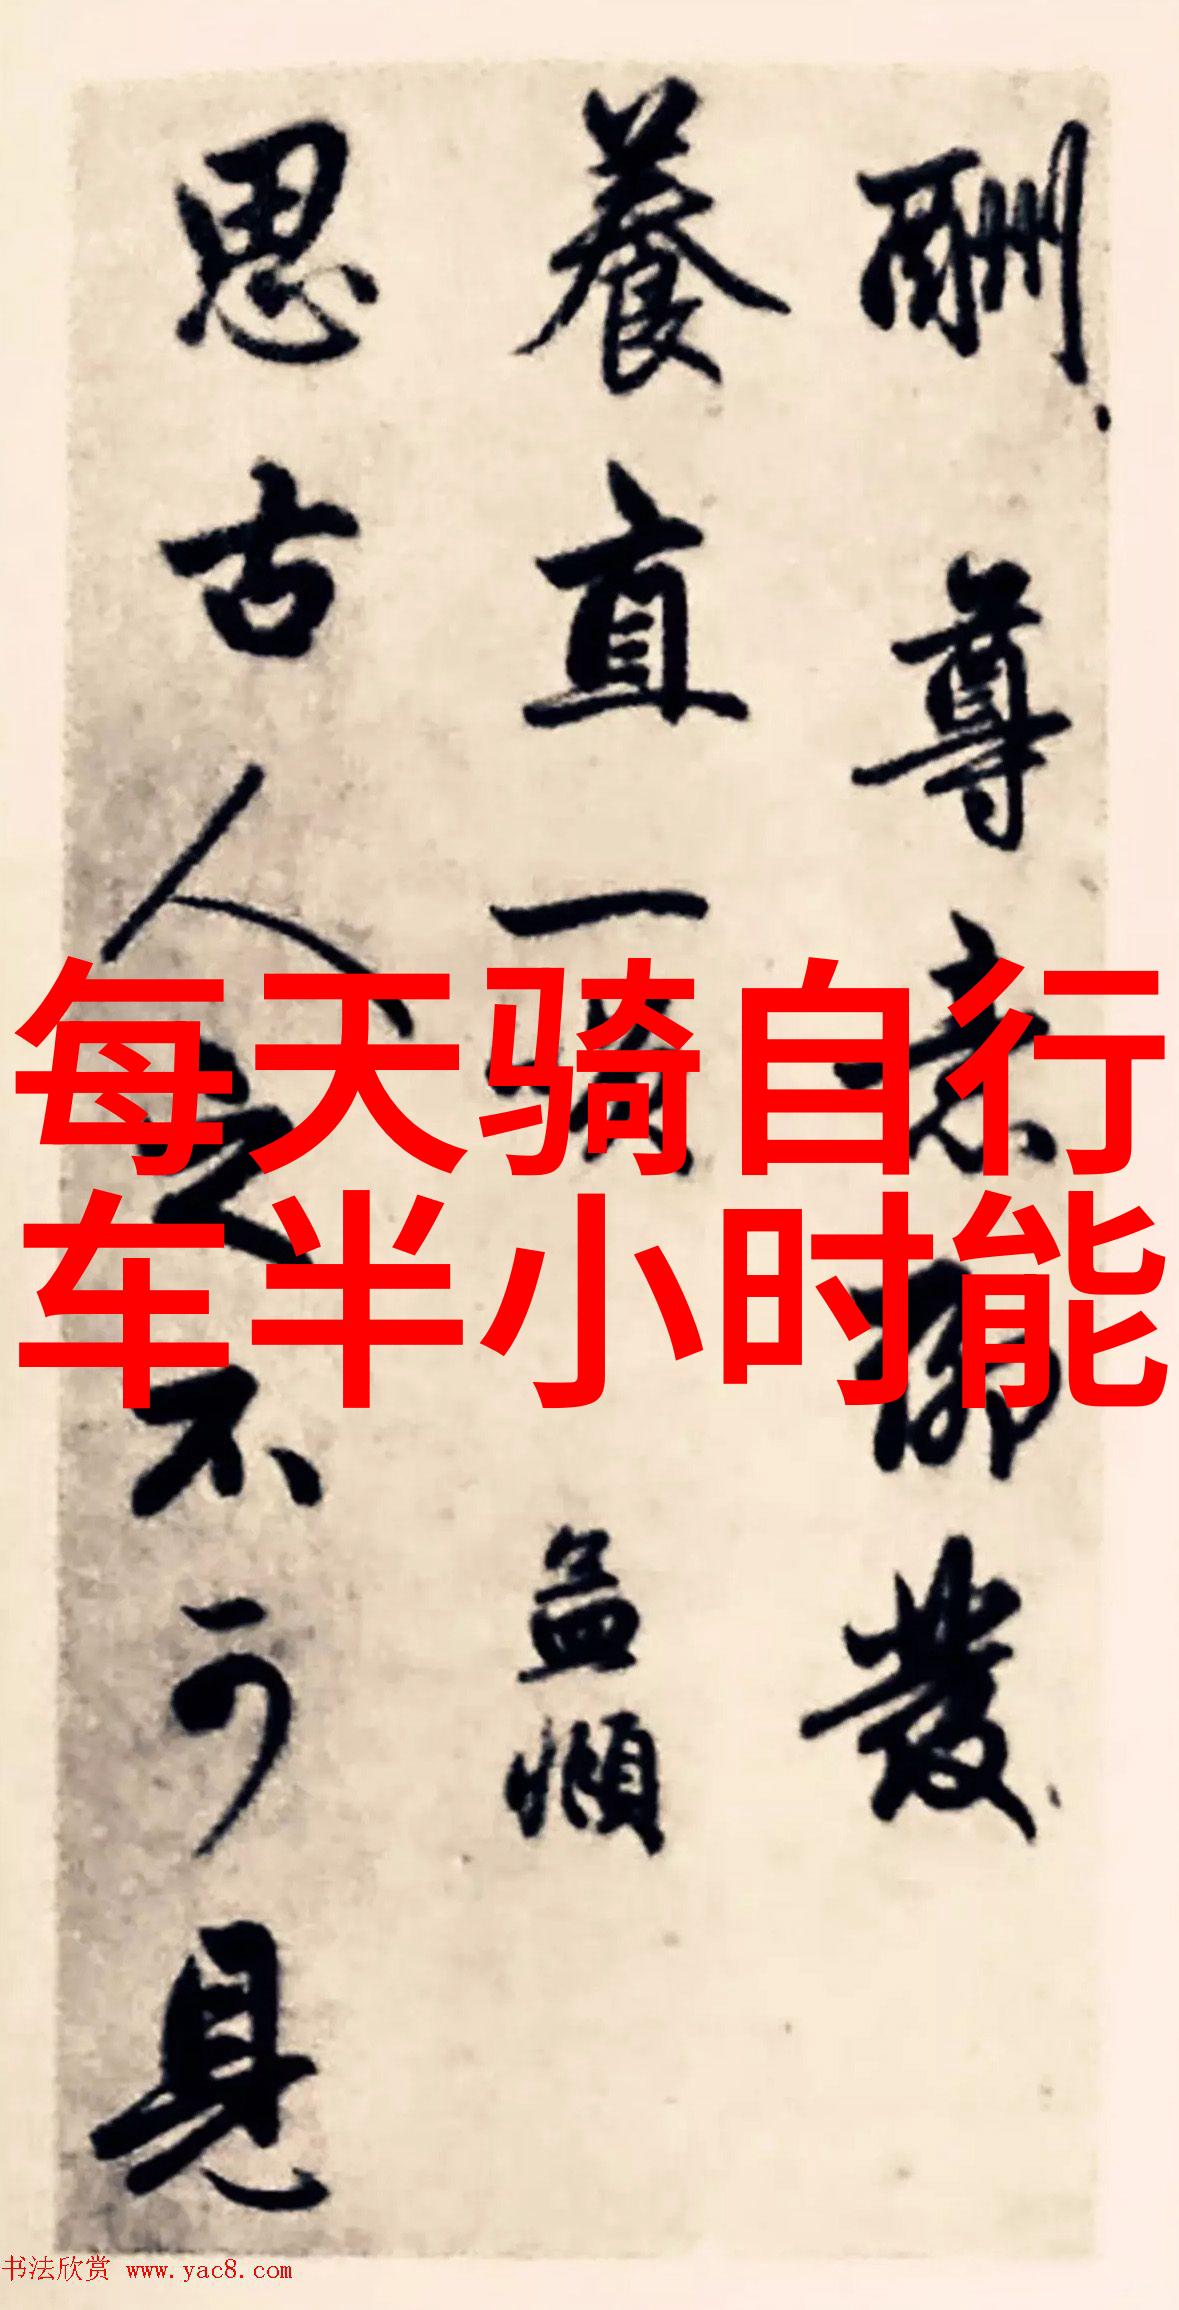 酬尊素聊發
養直一
孟頫
思古人之不可見
每天骑自行
车半小时能
书法欣赏 www.yac8.com